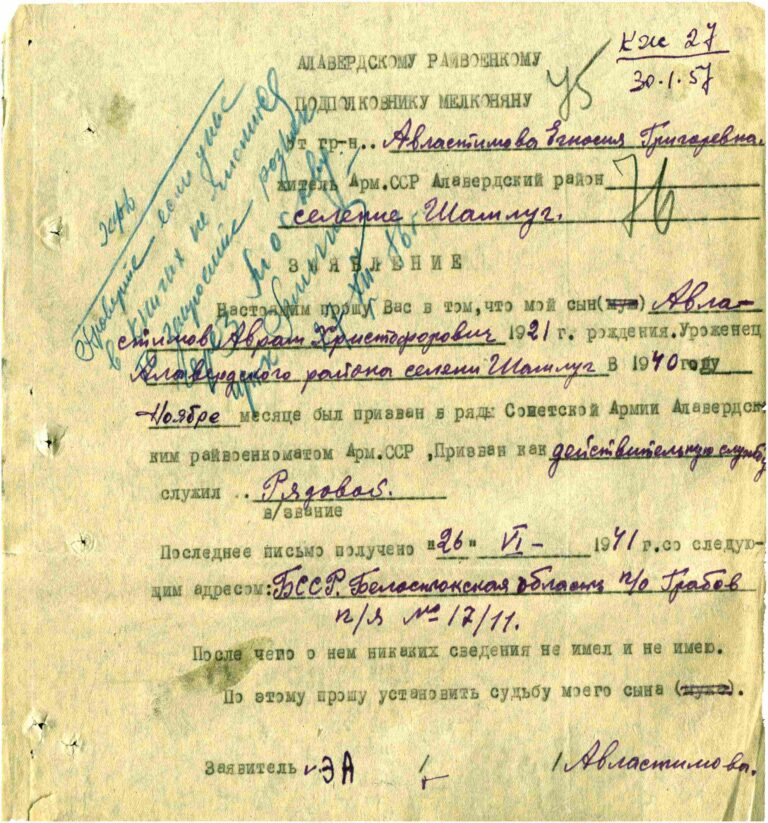 Кж 27
30.1.57
АЛАВЕРДСКОМУ РАЙВОЕНКОМУ
75
ПОДПОЛКОВНИКУ МЕЛКОНЯНУ
От гр-н.. Авластимова Егносия Григоревна.
житель Арм.ССР Алавердский район
76
селение Шамлуг.
Проверьте если у нас
в книгах не
запросите розыск
через Москву
ЗАЯВЛЕНИЕ
Настоящим прошу Вас в том, что мой сын(муж) Авла-
стимов Аврам Христофорович 1921 г. рождения. Уроженец
Алавердского района селени Шамлуг В 1940 году
Ноябре месяце был призван в ряды Советской Армии Алавердск-
ким райвоенкоматом Арм.ССР ,Призван как действительную службу
служил .. Рядовой.
в/звание
Последнее письмо получено "26" VI- 1941 г.со следую-
щим адресом: БССР. Белостокская область п/о Грабов
п/я № 17/11.
После чего о нем никаких сведения не имел и не имею.
По этому прошу установить судьбу моего сына (мужа).
Заявитель ЭА / / Авластимова.